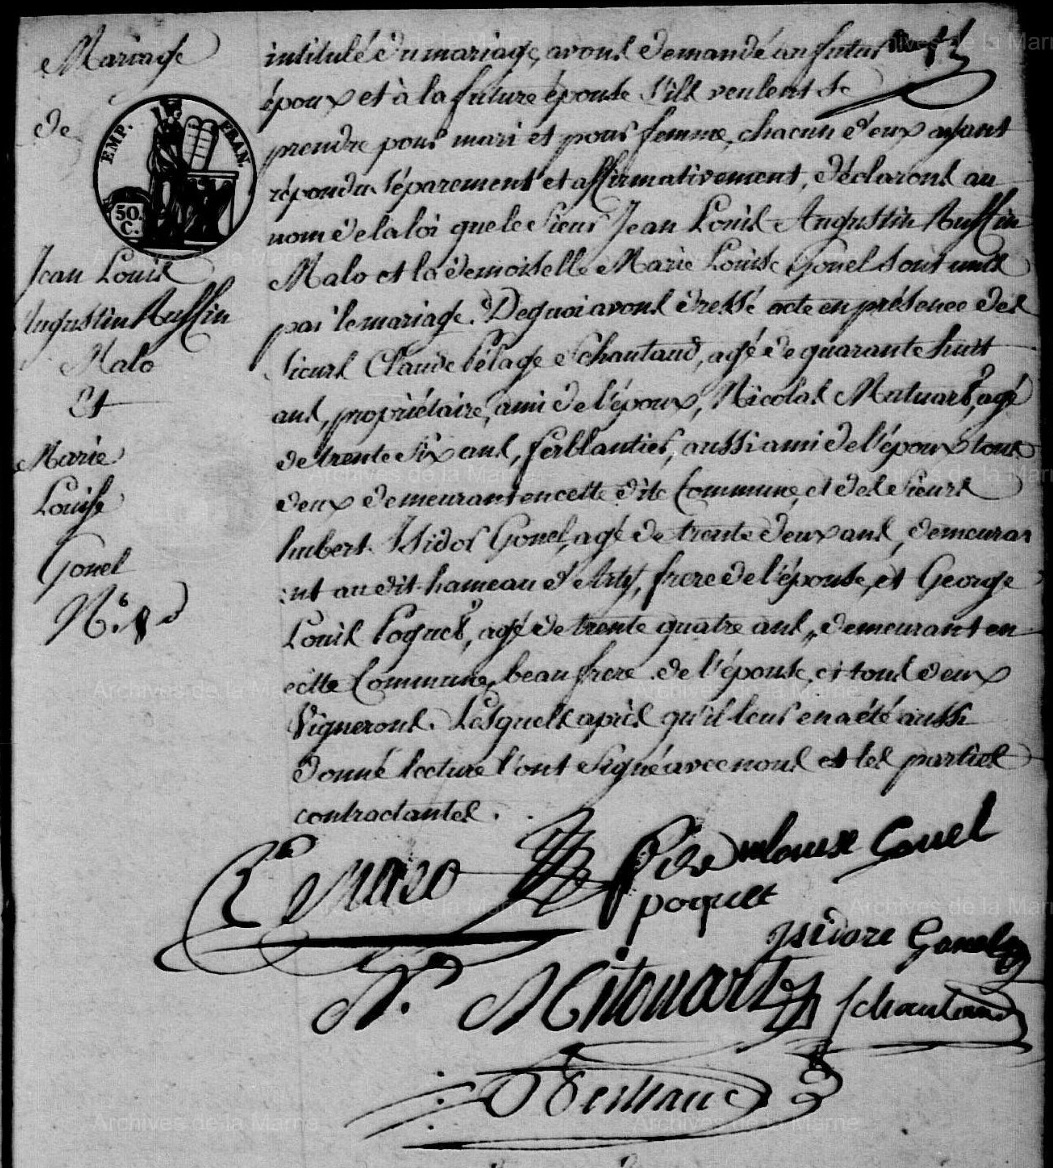 Mariage
de
EMP. FRAN.
50 C.
Jean Louis
Augustin Ruffin
Malo
Et
Marie
Louise
Gonel
N.º 8
intitulé du mariage, avons demandé au futur
époux et à la future épouse s'ils veulent se
prendre pour mari et pour femme, chacun d'eux ayant
répondu séparement et affirmativement, déclarons au
nom de la loi que le sieur Jean Louis Augustin Ruffin
Malo et la demoiselle Marie Louise Gonel sont unis
par le mariage. De quoi avons dressé acte en présence des
sieurs Claude Pélage Schautaud, agé de quarante huit
ans, propriétaire, ami de l'époux, Nicolas Mutuart, agé
de trente six ans, ferblantier, aussi ami de l'époux tous
deux demeurant en cette dite Commune, et des sieurs
hubert Isidor Gonel, agé de trente deux ans, demeura
nt au dit hameau d'Arty, frere de l'épouse, et George
Louis Poquet, agé de trente quatre ans, demeurant en
cette Commune, beau frere de l'épouse, et tous deux
Vignerons. Lesquels après qu'il leur en a été aussi
donné lecture l'ont signé avec nous et les parties
contractantes.
Malo
m louise Gonel
poquet
isidore Gonel
N. Mitouart
schautaud
Archives de la Marne